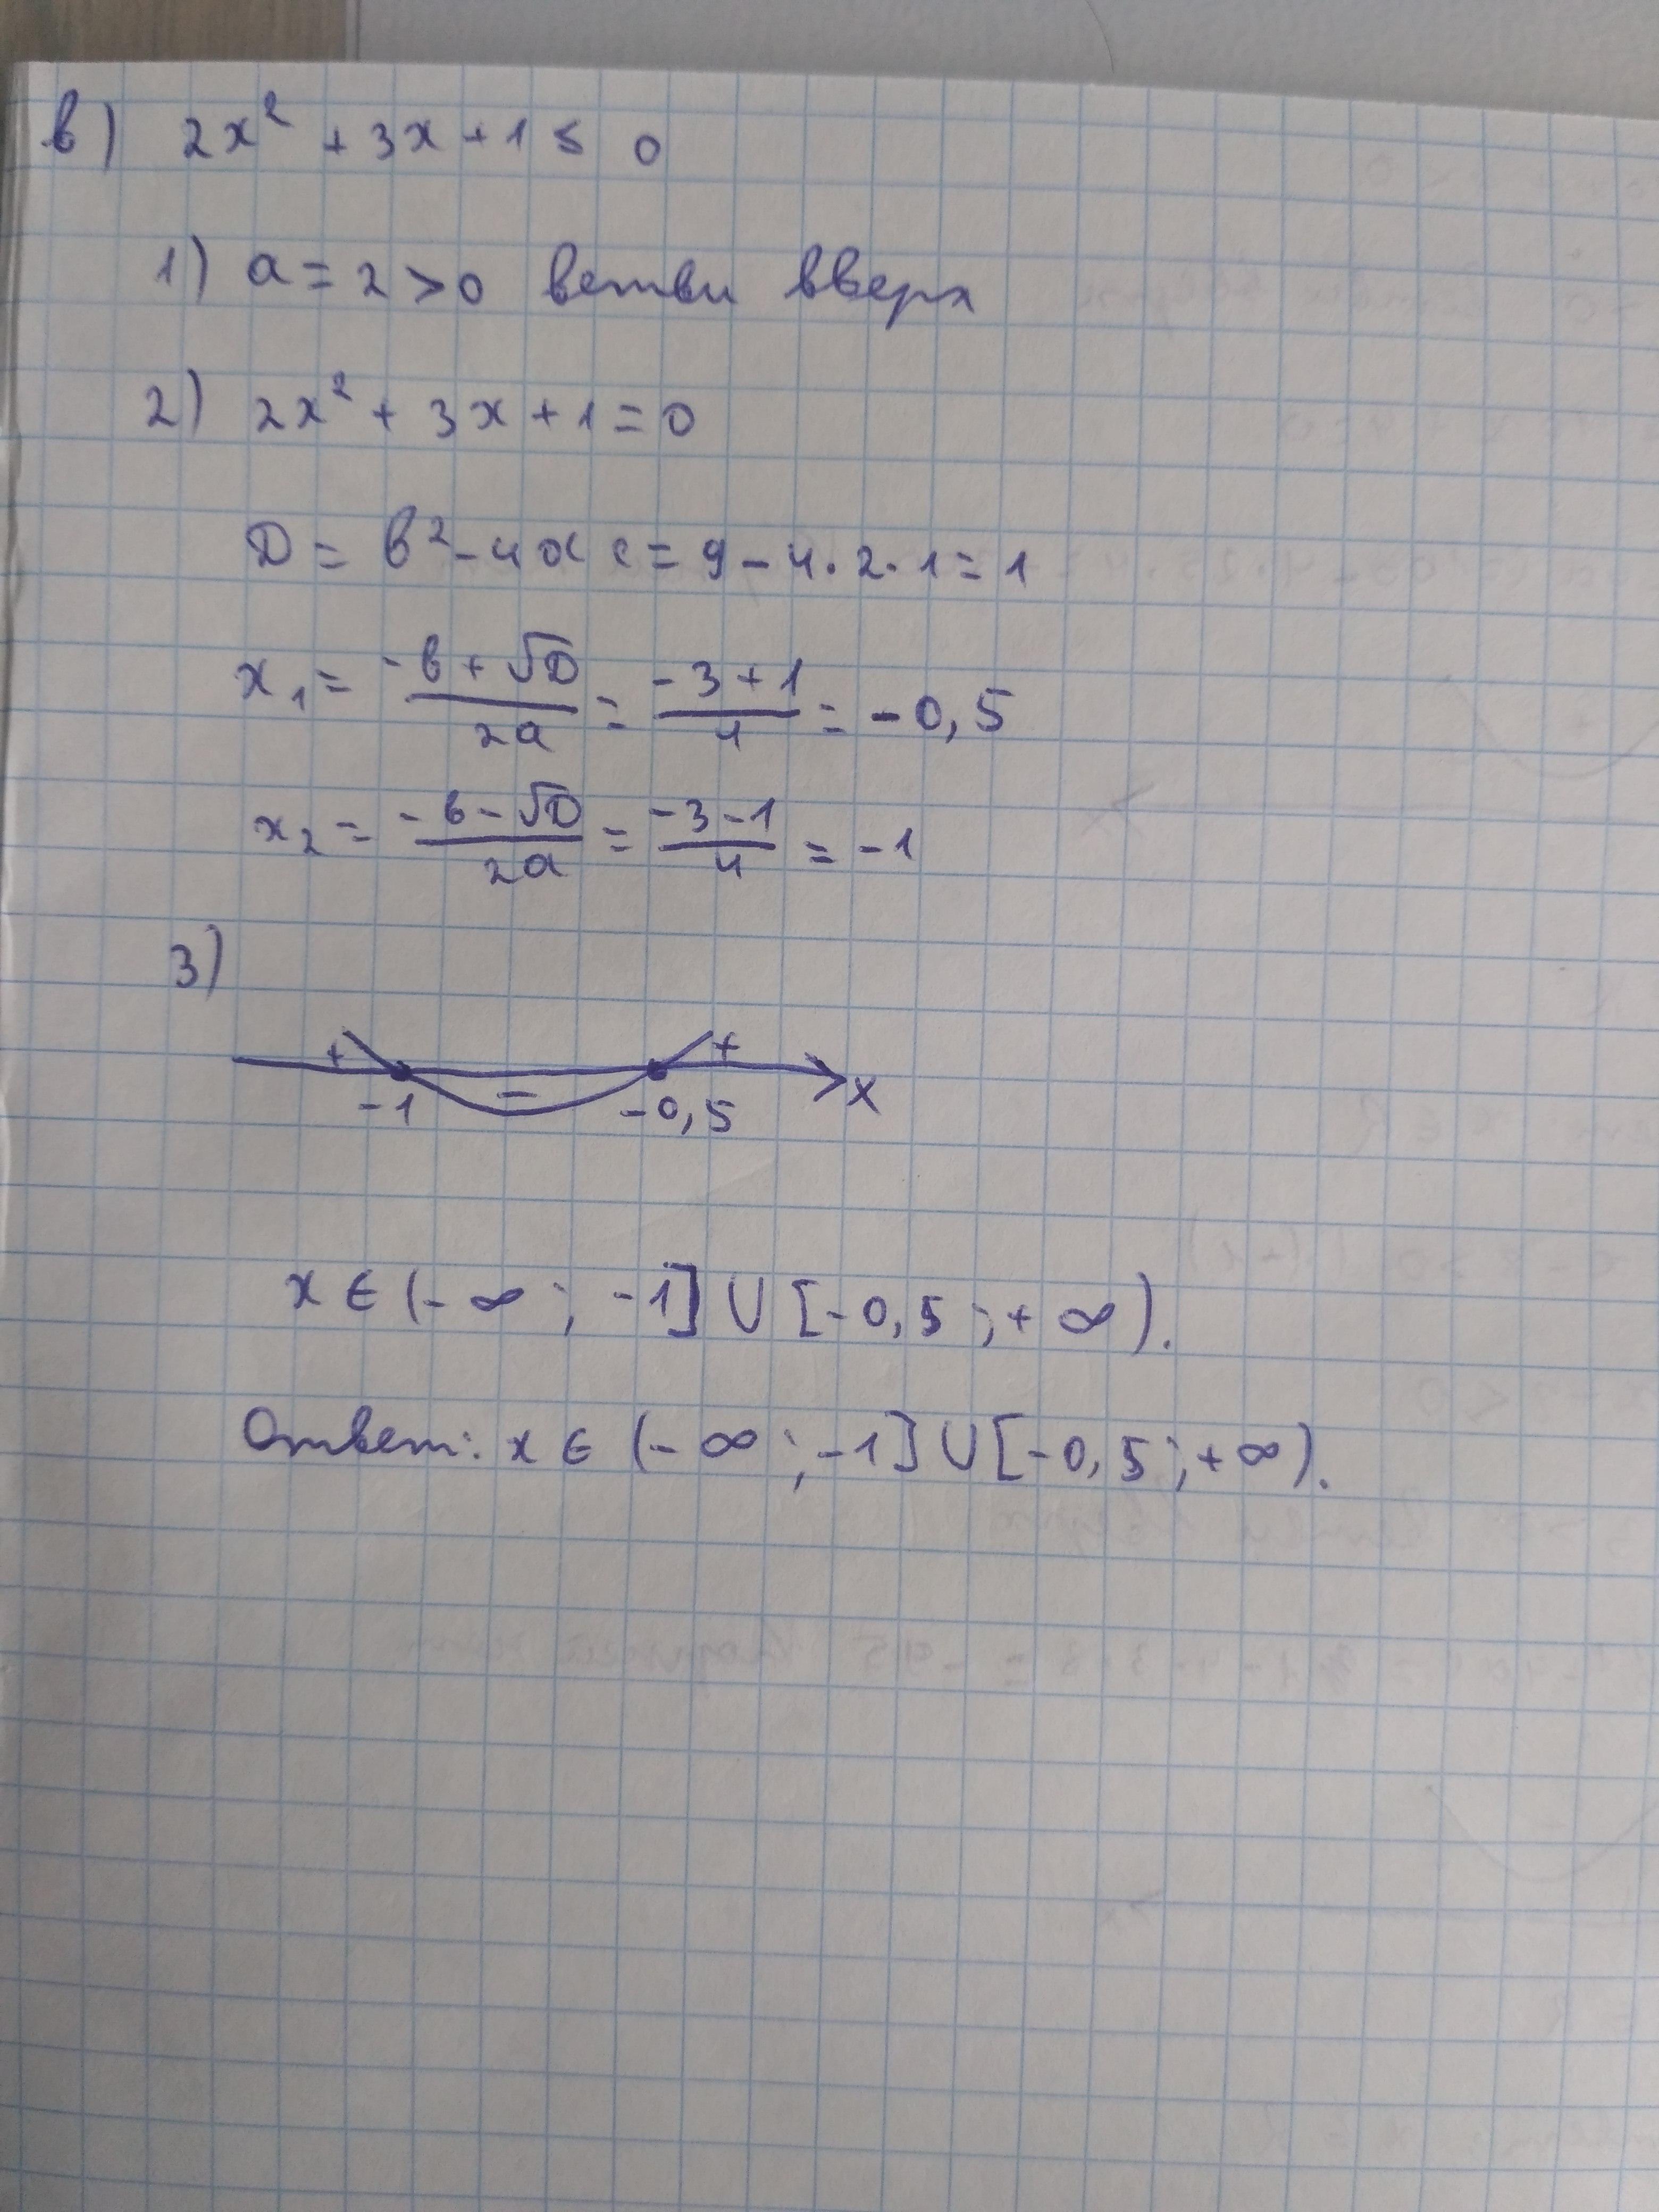 в) 2x² + 3x + 1 ≤ 0
1) a = 2 > 0 ветви вверх
2) 2x² + 3x + 1 = 0
D = b² - 4ac = 9 - 4·2·1 = 1
x₁ = (-b + √D)/(2a) = (-3 + 1)/4 = -0,5
x₂ = (-b - √D)/(2a) = (-3 - 1)/4 = -1
3)
+ - + x
-1 -0,5
x ∈ (-∞; -1] ∪ [-0,5; +∞).
Ответ: x ∈ (-∞; -1] ∪ [-0,5; +∞).